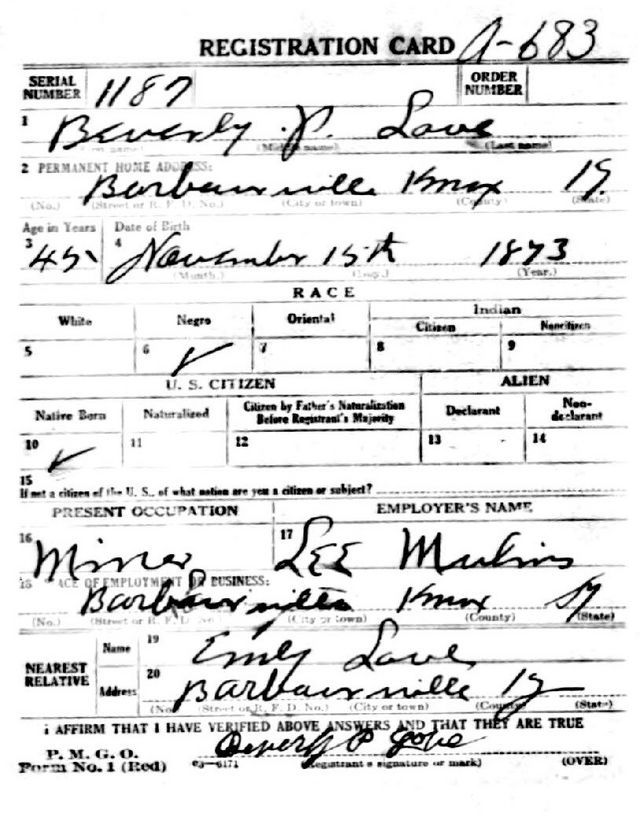 REGISTRATION CARD A-683
SERIAL NUMBER 1187 ORDER NUMBER
1 Beverly P. Love
(Middle name) (Last name)
2 PERMANENT HOME ADDRESS:
Barbourville Knox Ky.
(No.) (Street or R. F. D. No.) (City or town) (County) (State)
Age in Years Date of Birth
3 45 4 November 15th 1873
(Month.) (Day.) (Year.)
RACE
White Negro Oriental Indian
Citizen Noncitizen
5 6 ✓ 7 8 9
U. S. CITIZEN ALIEN
Native Born Naturalized Citizen by Father's Naturalization Before Registrant's Majority Declarant Non-declarant
10 ✓ 11 12 13 14
15
If not a citizen of the U. S., of what nation are you a citizen or subject?
PRESENT OCCUPATION EMPLOYER'S NAME
16 Miner 17 LEE
18 PLACE OF EMPLOYMENT OR BUSINESS:
Barbourville Knox Ky
(No.) (Street or R. F. D. No.) (City or town) (County) (State)
NEAREST RELATIVE
Name 19 Emily Love
Address 20 Barbourville Ky
(No.) (Street or R. F. D. No.) (City or town) (County) (State)
I AFFIRM THAT I HAVE VERIFIED ABOVE ANSWERS AND THAT THEY ARE TRUE
P. M. G. O.
Form No. 1 (Red) 03—6171 Beverly P Love
(Registrant's signature or mark) (OVER)